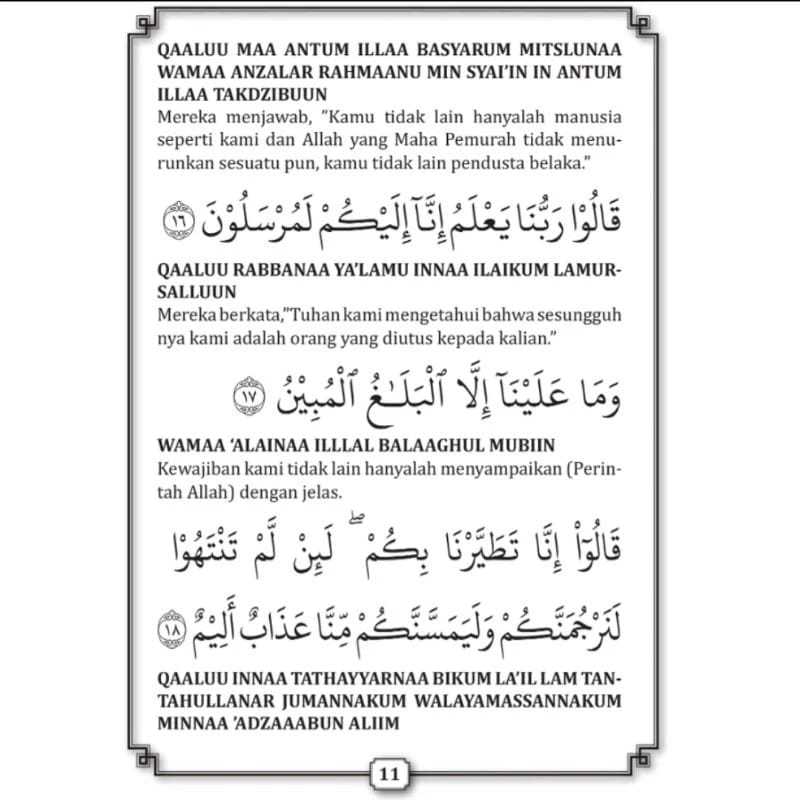 QAALUU MAA ANTUM ILLAA BASYARUM MITSLUNAA
WAMAA ANZALAR RAHMAANU MIN SYAI’IN IN ANTUM
ILLAA TAKDZIBUUN
Mereka menjawab, ”Kamu tidak lain hanyalah manusia
seperti kami dan Allah yang Maha Pemurah tidak menu-
runkan sesuatu pun, kamu tidak lain pendusta belaka.”
قَالُوْا رَبُّنَا يَعْلَمُ إِنَّآ إِلَيْكُمْ لَمُرْسَلُوْنَ ١٦
QAALUU RABBANAA YA’LAMU INNAA ILAIKUM LAMUR-
SALLUUN
Mereka berkata,”Tuhan kami mengetahui bahwa sesungguh
nya kami adalah orang yang diutus kepada kalian.”
وَمَا عَلَيْنَآ إِلَّا ٱلْبَلَـٰغُ ٱلْمُبِيْنُ ١٧
WAMAA ‘ALAINAA ILLLAL BALAAGHUL MUBIIN
Kewajiban kami tidak lain hanyalah menyampaikan (Perin-
tah Allah) dengan jelas.
قَالُوْٓا إِنَّا تَطَيَّرْنَا بِكُمْ ۖ لَئِنْ لَّمْ تَنْتَهُوْا
لَنَرْجُمَنَّكُمْ وَلَيَمَسَّنَّكُمْ مِّنَّا عَذَابٌ أَلِيْمٌ ١٨
QAALUU INNAA TATHAYYARNAA BIKUM LA’IL LAM TAN-
TAHULLANAR JUMANNAKUM WALAYAMASSANNAKUM
MINNAA ’ADZAAABUN ALIIM
11